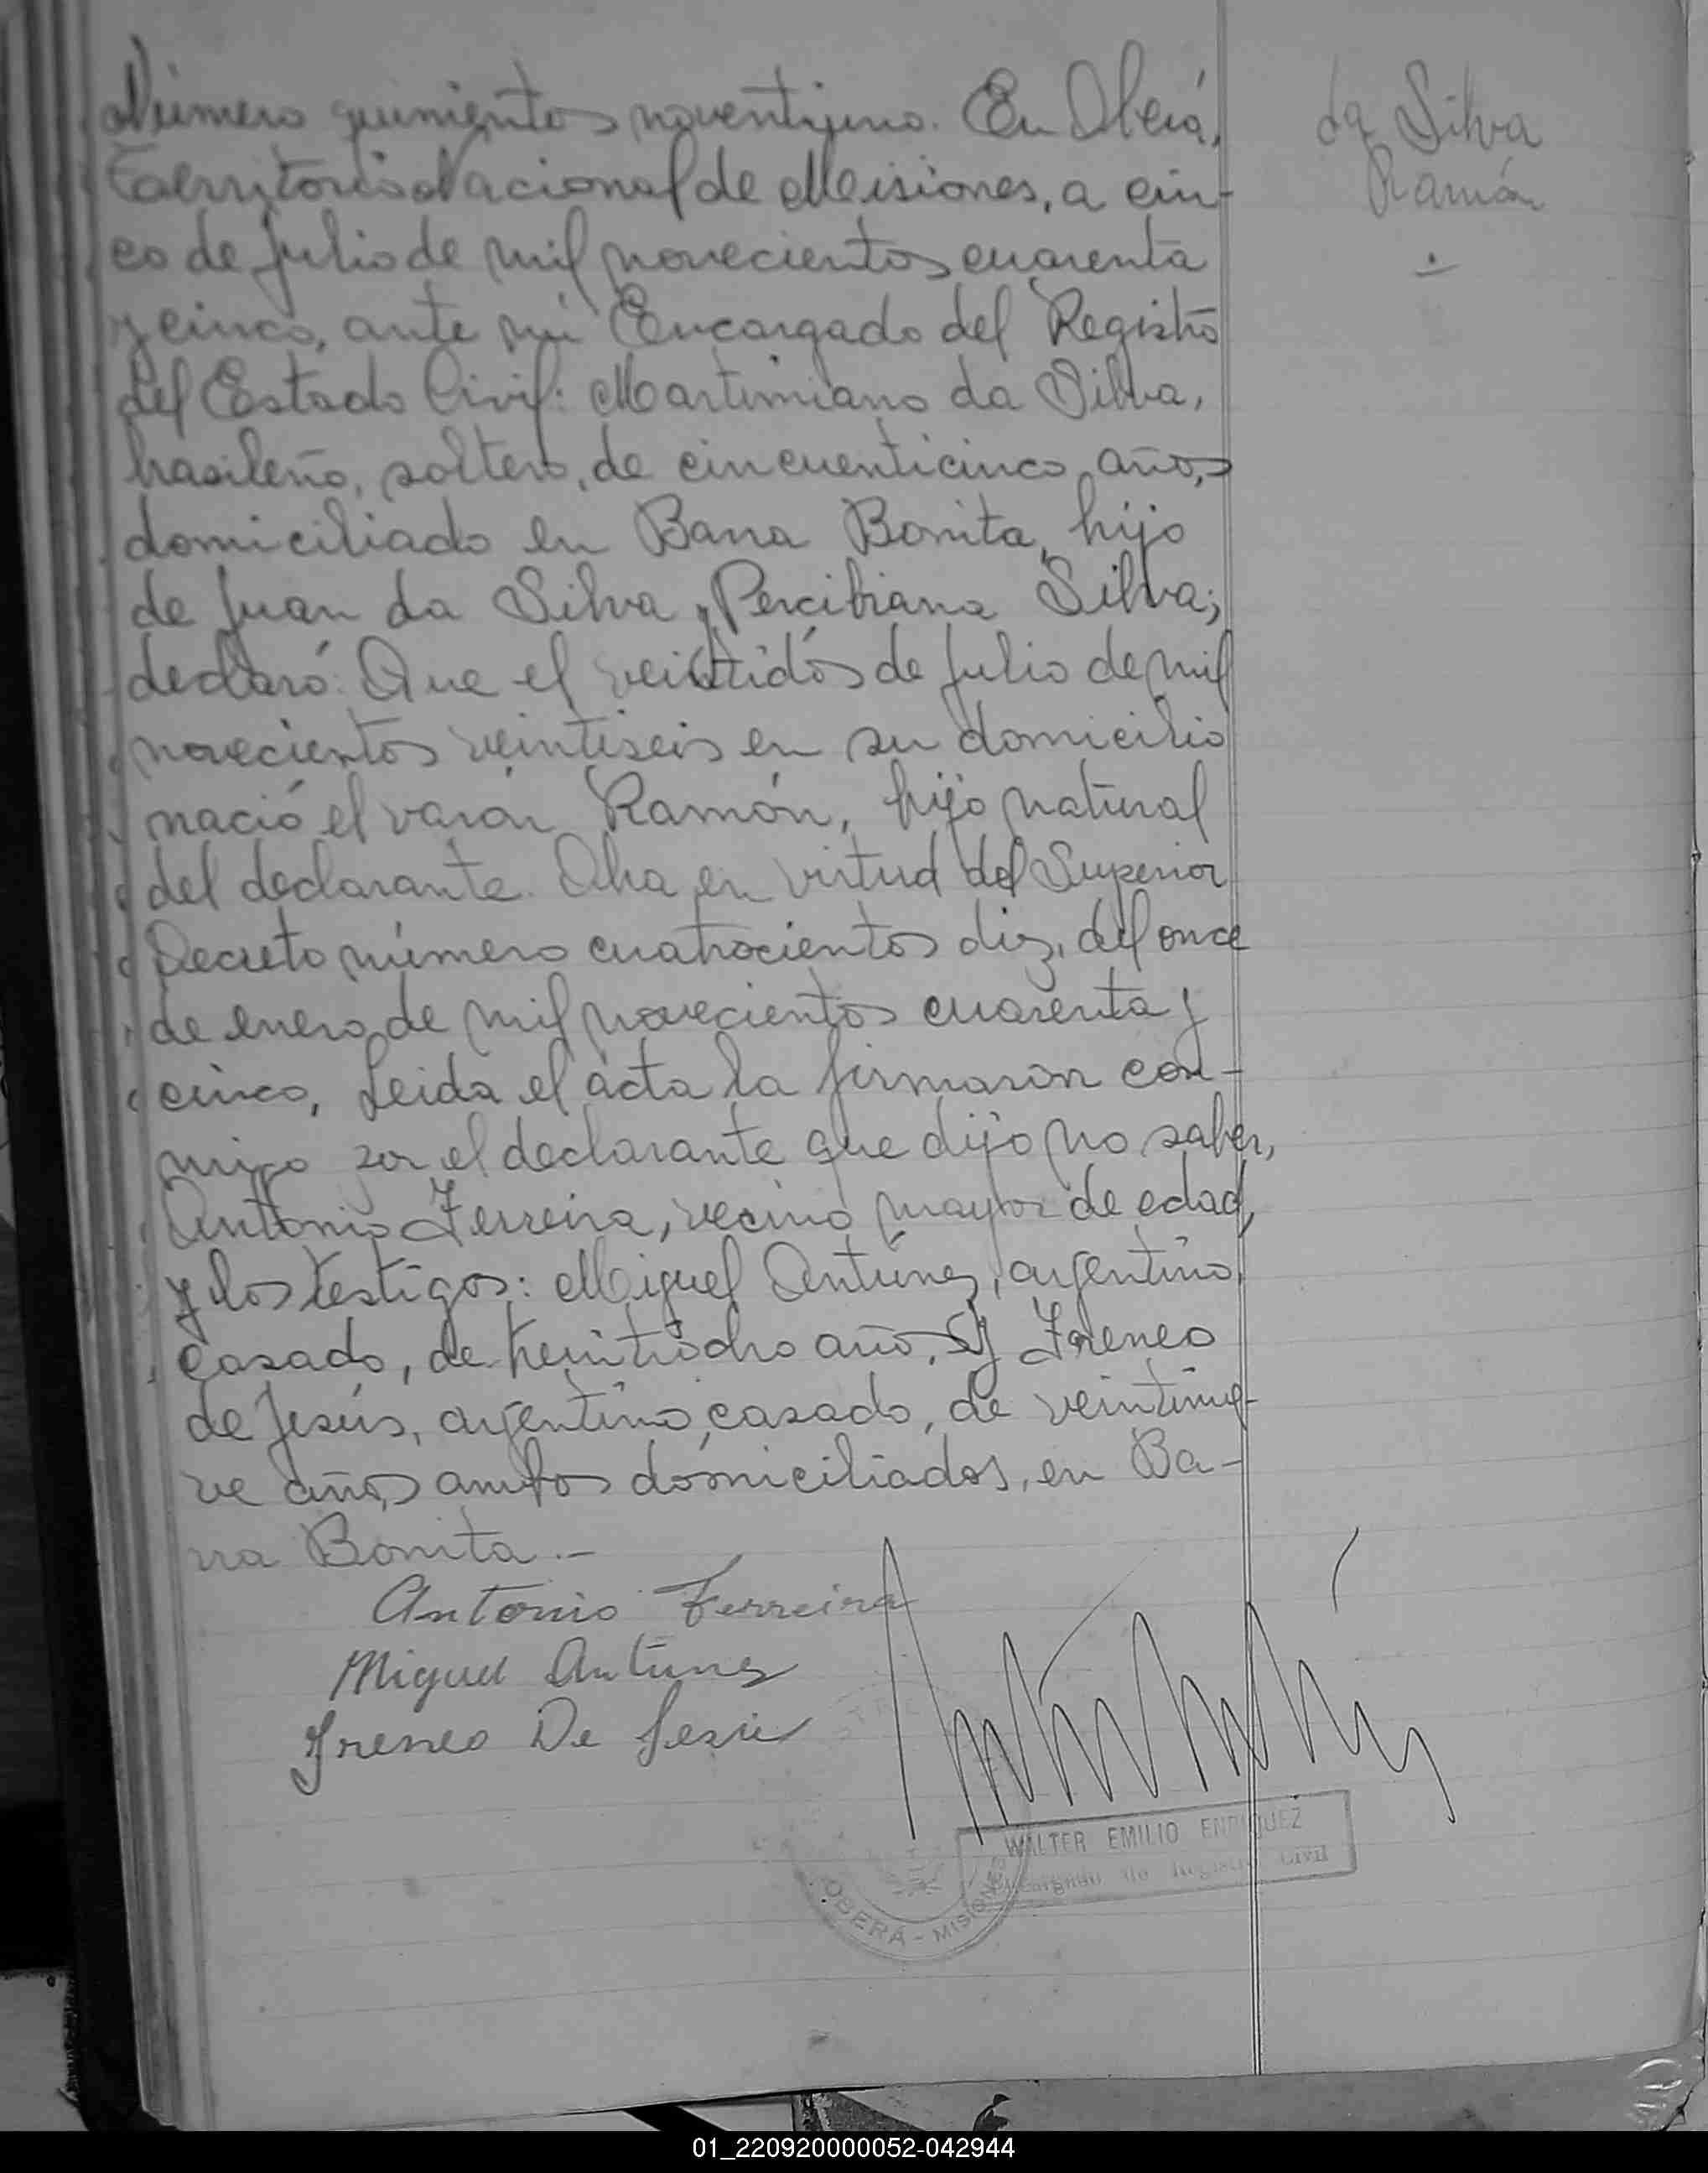 Número quinientos noventiuno. En Oberá,
Territorio Nacional de Misiones, a cin-
co de Julio de mil novecientos cuarenta
y cinco, ante mi Encargado del Registro
del Estado Civil: Martimiano da Silva,
brasileño, soltero, de cincuenticinco años,
domiciliado en Barra Bonita, hijo
de Juan da Silva y Percibiana Silva;
declaró: Que el veintidós de Julio de mil
novecientos veintiseis en su domicilio
nació el varón Ramón, hijo natural
del declarante. Obra en virtud del Superior
Decreto número cuatrocientos diez, del once
de enero de mil novecientos cuarenta y
cinco, Leida el acta la firmaron con-
migo por el declarante que dijo no saber,
Antonio Ferreira, vecino mayor de edad,
y los testigos: Miguel Antúnez, argentino,
casado, de treintiocho años, y Ireneo
de Jesús, argentino, casado, de veintinue-
ve años, ambos domiciliados, en Ba-
rra Bonita.-
da Silva
Ramón
Antonio Ferreira
Miguel Antunez
Ireneo De Jesus
WALTER EMILIO ENRIQUEZ
Encargado de Registro Civil
OBERÁ - MISIONES
01_220920000052-042944